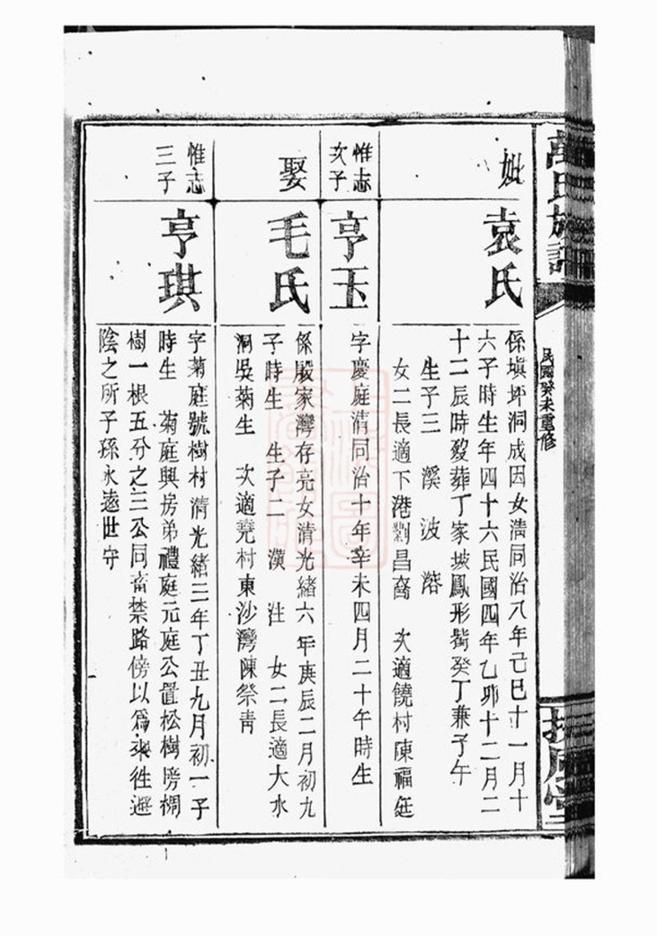 萬氏族譜
民國癸未重修
妣
袁氏
係塡坪洞成因女清同治八年己巳十一月十
六子時生年四十六民國四年乙卯十二月二
十二辰時歿葬丁家坡鳳形觜癸丁兼子午
生子三 溪 波 溶
女二長適下港劉昌裔 次適饒村陳福廷
惟志
次子
亨玉
字慶庭清同治十年辛未四月二十午時生
娶
毛氏
係殿家灣存亮女清光緒六年庚辰二月初九
子時生 生子二 漢 注 女二長適大水
洞吳菊生 次適堯村東沙灣陳祭青
惟志
三子
亨琪
字菊庭號樹村清光緒三年丁丑九月初一子
時生 菊庭與房弟禮庭元庭公置松樹塝棡
樹一根五分之三公同畜禁路傍以爲來往遊
陰之所子孫永遠世守